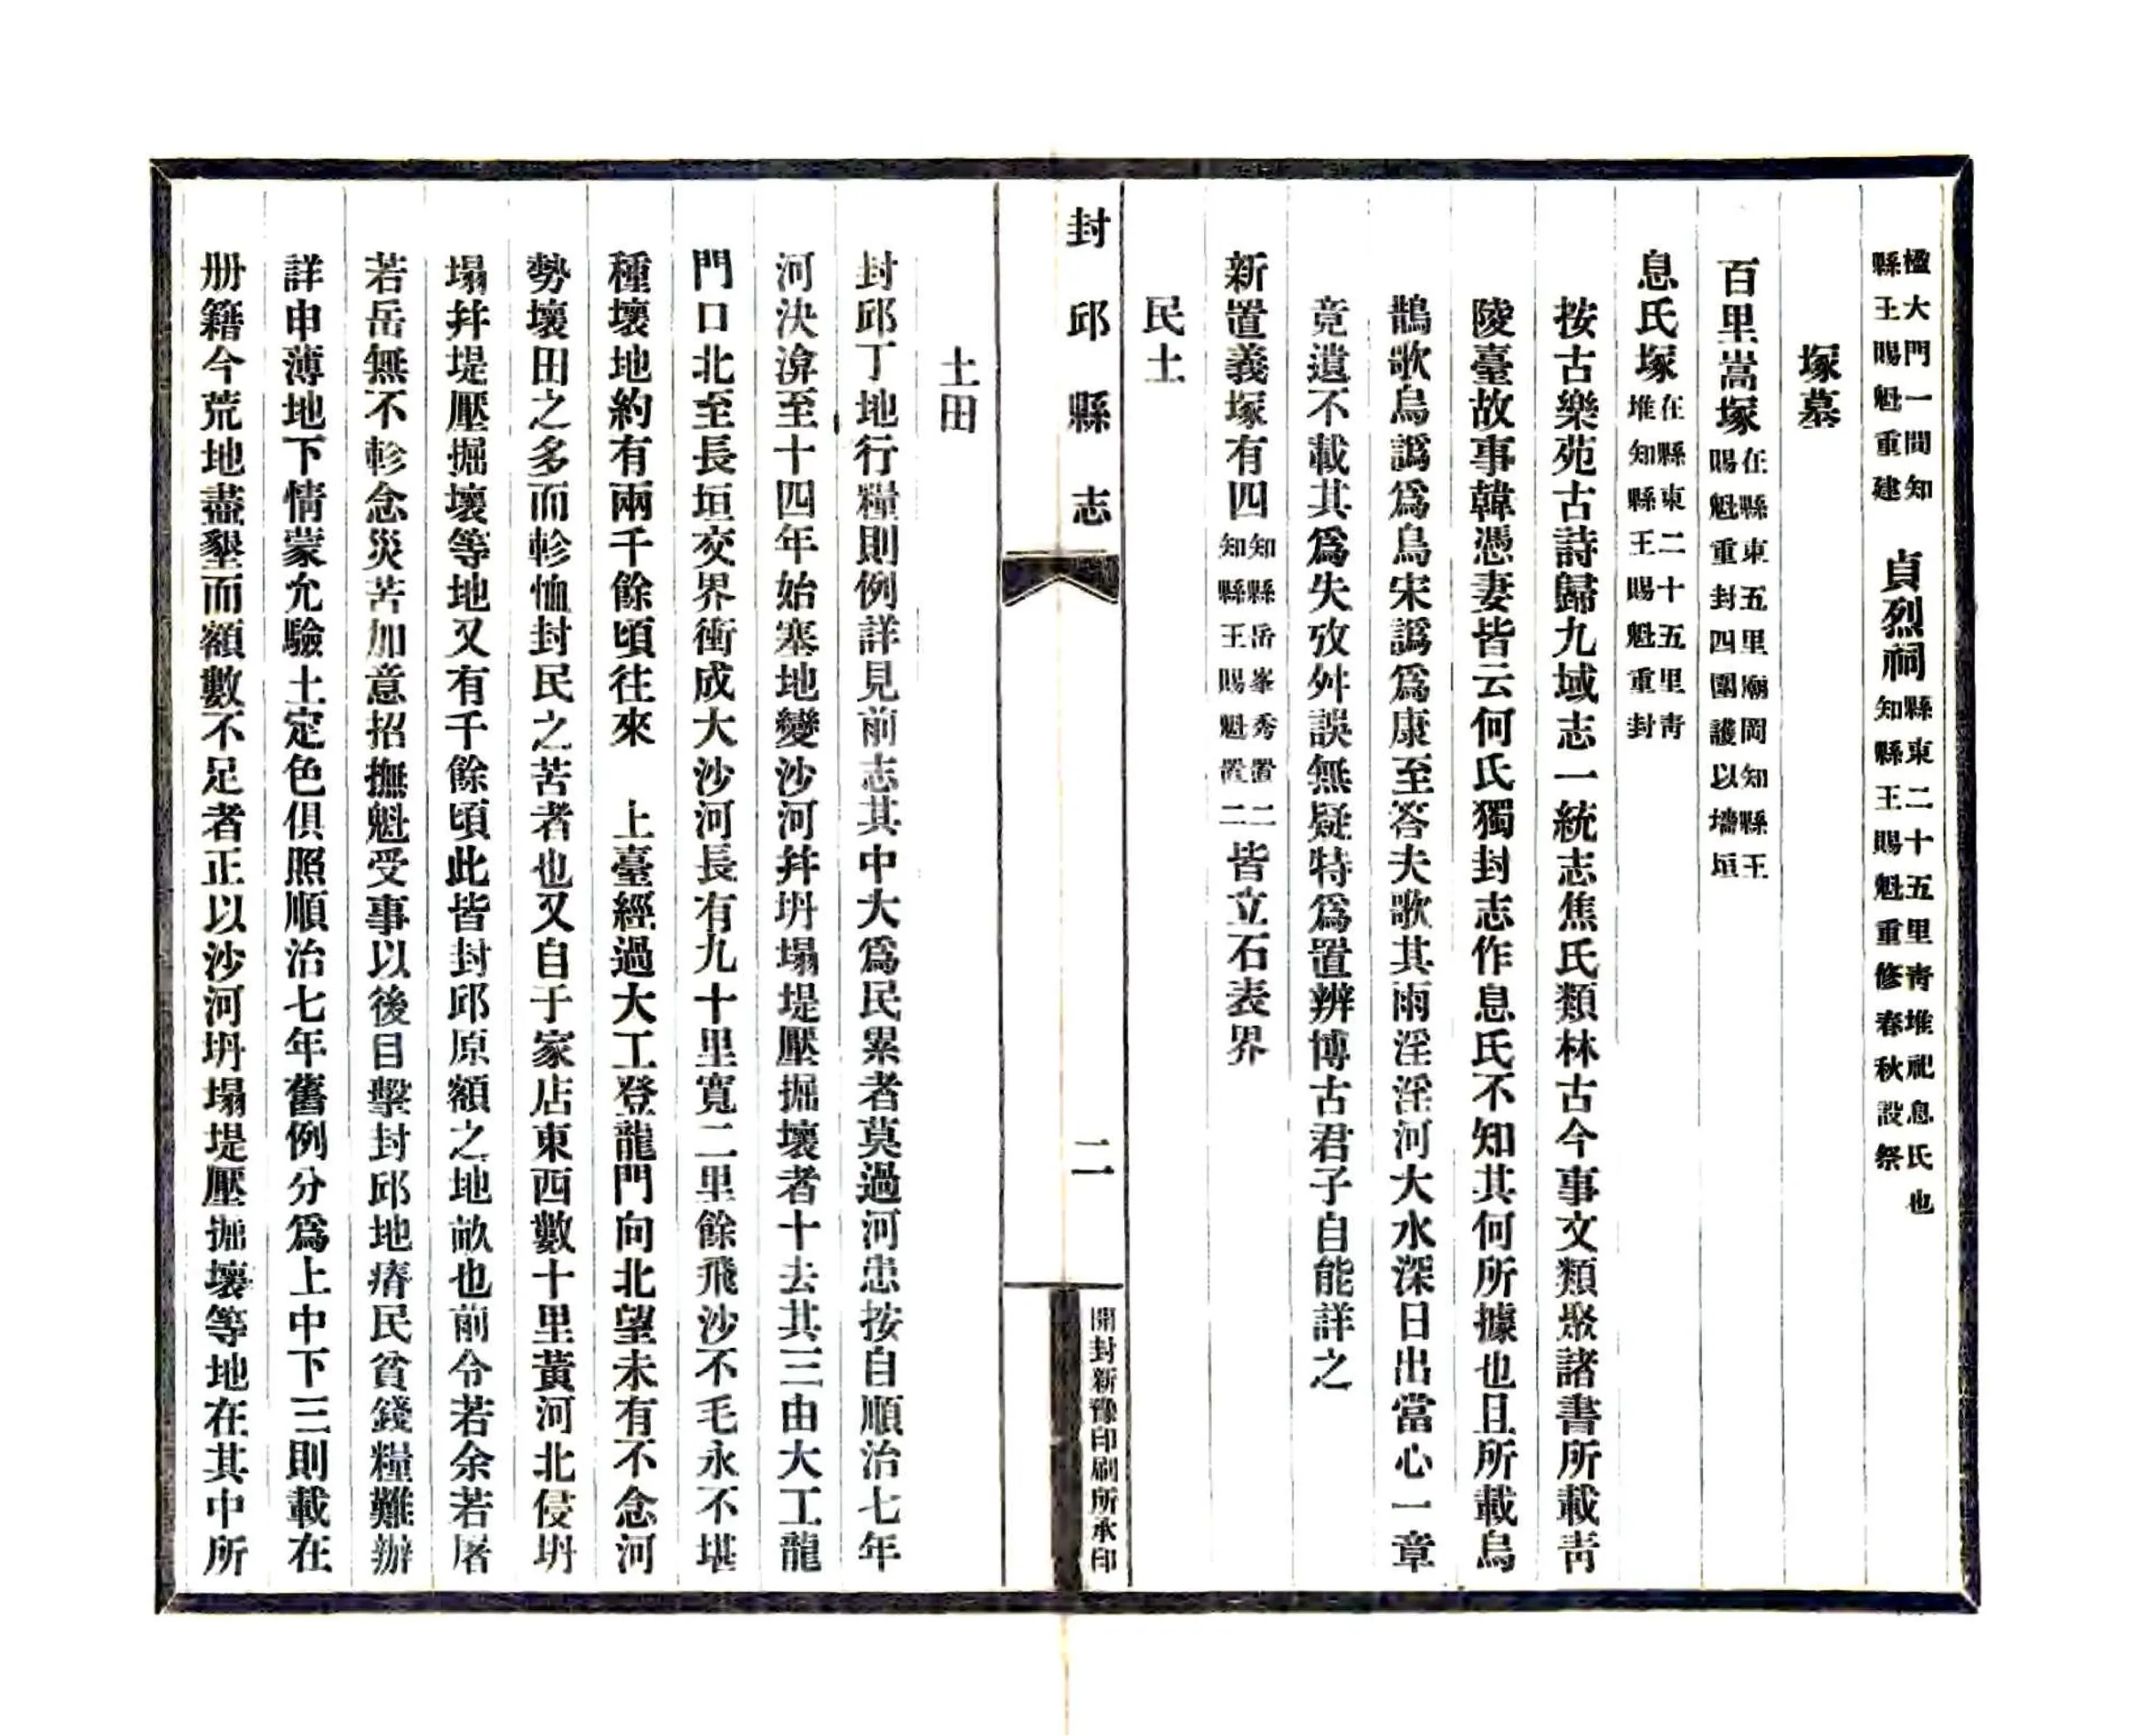 楹大門一間知
縣王賜魁重建
貞烈祠
縣東二十五里青堆祀息氏也
知縣王賜魁重修春秋設祭
塚墓
百里嵩塚
在縣東五里廟岡知縣王
賜魁重封四圍護以墻垣
息氏塚
在縣東二十五里青
堆知縣王賜魁重封
按古樂苑古詩歸九域志一統志焦氏類林古今事文類聚諸書所載青
陵臺故事韓憑妻皆云何氏獨封志作息氏不知其何所據也且所載烏
鵲歌烏譌爲鳥宋譌爲康至答夫歌其雨淫淫河大水深日出當心一章
竟遺不載其爲失攷舛誤無疑特爲置辨博古君子自能詳之
新置義塚有四
知縣岳峯秀置二
知縣王賜魁置二
皆立石表界
民土
封邱縣志
二
開封新豫印刷所承印
土田
封邱丁地行糧則例詳見前志其中大爲民累者莫過河患按自順治七年
河決渰至十四年始塞地變沙河幷坍塌堤壓掘壞者十去其三由大工龍
門口北至長垣交界衝成大沙河長有九十里寬二里餘飛沙不毛永不堪
種壞地約有兩千餘頃往來 上臺經過大工登龍門向北望未有不念河
勢壞田之多而軫恤封民之苦者也又自于家店東西數十里黃河北侵坍
塌幷堤壓掘壞等地又有千餘頃此皆封邱原額之地畝也前令若余若屠
若岳無不軫念災苦加意招撫魁受事以後目擊封邱地瘠民貧錢糧難辦
詳申薄地下情蒙允驗土定色俱照順治七年舊例分爲上中下三則載在
册籍今荒地盡墾而額數不足者正以沙河坍塌堤壓掘壞等地在其中所